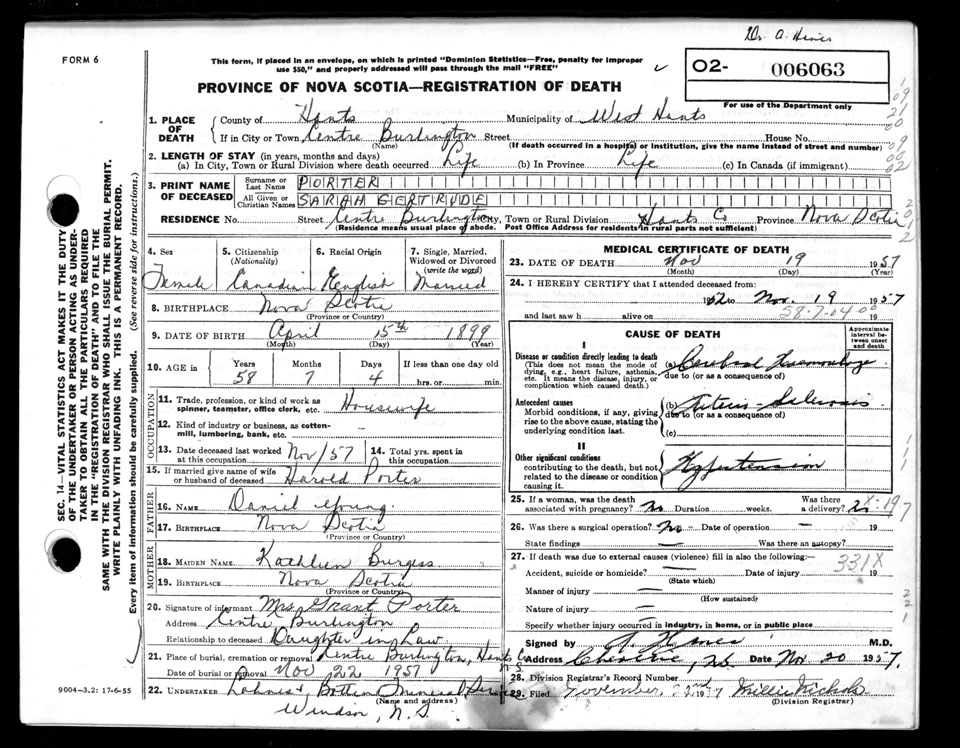 Dr. A.
FORM 6
This form, if placed in an envelope, on which is printed "Dominion Statistics—Free, penalty for improper
use $50," and properly addressed will pass through the mail "FREE"
O2- 006063
For use of the Department only
PROVINCE OF NOVA SCOTIA—REGISTRATION OF DEATH
1. PLACE OF DEATH
County of Hants Municipality of West Hants
If in City or Town Centre Burlington Street House No.
(Name) (If death occurred in a hospital or institution, give the name instead of street and number)
2. LENGTH OF STAY (in years, months and days)
(a) In City, Town or Rural Division where death occurred Life (b) In Province Life (c) In Canada (if immigrant)
3. PRINT NAME OF DECEASED
Surname or Last Name PORTER
All Given or Christian Names SARAH GERTRUDE
RESIDENCE No. Street Centre Burlington City, Town or Rural Division Hants Co Province Nova Scotia
(Residence means usual place of abode. Post Office Address for residents in rural parts not sufficient)
4. Sex Female
5. Citizenship (Nationality) Canadian
6. Racial Origin English
7. Single, Married, Widowed or Divorced (write the word) Married
8. BIRTHPLACE Nova Scotia
(Province or Country)
9. DATE OF BIRTH April 15th 1899
(Month) (Day) (Year)
10. AGE in Years Months Days If less than one day old
58 7 4 hrs. or min.
OCCUPATION
11. Trade, profession, or kind of work as spinner, teamster, office clerk, etc. Housewife
12. Kind of industry or business, as cotton-mill, lumbering, bank, etc. —
13. Date deceased last worked at this occupation Nov/57
14. Total yrs. spent in this occupation
15. If married give name of wife or husband of deceased Harold Porter
FATHER
16. NAME Daniel Young
17. BIRTHPLACE Nova Scotia
(Province or Country)
MOTHER
18. MAIDEN NAME Kathleen Burgess
19. BIRTHPLACE Nova Scotia
(Province or Country)
20. Signature of informant Mrs Grant Porter
Address Centre Burlington
Relationship to deceased Daughter in Law
21. Place of burial, cremation or removal Centre Burlington, Hants Co N.S.
Date of burial or removal Nov 22 1957
22. UNDERTAKER Funeral Service
(Name and address)
Windsor, N.S.
MEDICAL CERTIFICATE OF DEATH
23. DATE OF DEATH Nov 19 1957
(Month) (Day) (Year)
24. I HEREBY CERTIFY that I attended deceased from:
1952 to Nov. 19 1957
and last saw h alive on 19
58-7-04 00
CAUSE OF DEATH
Approximate interval between onset and death
I
Disease or condition directly leading to death
(This does not mean the mode of dying, e.g., heart failure, asthenia, etc. It means the disease, injury, or complication which caused death.)
(a) Cerebral Haemorrhage
due to (or as a consequence of)
Antecedent causes
Morbid conditions, if any, giving rise to the above cause, stating the underlying condition last.
(b) Arterio-Sclerosis
due to (or as a consequence of)
(c)
II
Other significant conditions
contributing to the death, but not related to the disease or condition causing it.
Hypertension
25. If a woman, was the death associated with pregnancy? No Duration weeks. Was there a delivery?
X-197
26. Was there a surgical operation? No Date of operation — 19
State findings — Was there an autopsy?
27. If death was due to external causes (violence) fill in also the following:—
331X
Accident, suicide or homicide? — Date of injury 19
(State which)
Manner of injury —
(How sustained)
Nature of injury —
Specify whether injury occurred in industry, in home, or in public place
Signed by M.D.
Address Cheverie, N.S. Date Nov. 20 1957.
28. Division Registrar's Record Number
29. Filed November, 22nd 1957 Millie Nichols
(Division Registrar)
9004-3.2: 17-6-55
SEC. 14—VITAL STATISTICS ACT MAKES IT THE DUTY
OF THE UNDERTAKER OR PERSON ACTING AS UNDER-
TAKER TO OBTAIN ALL THE PARTICULARS REQUIRED
IN THE "REGISTRATION OF DEATH" AND TO FILE THE
SAME WITH THE DIVISION REGISTRAR WHO SHALL ISSUE THE BURIAL PERMIT.
WRITE PLAINLY WITH UNFADING INK. THIS IS A PERMANENT RECORD.
Every item of information should be carefully supplied. (See reverse side for instructions.)